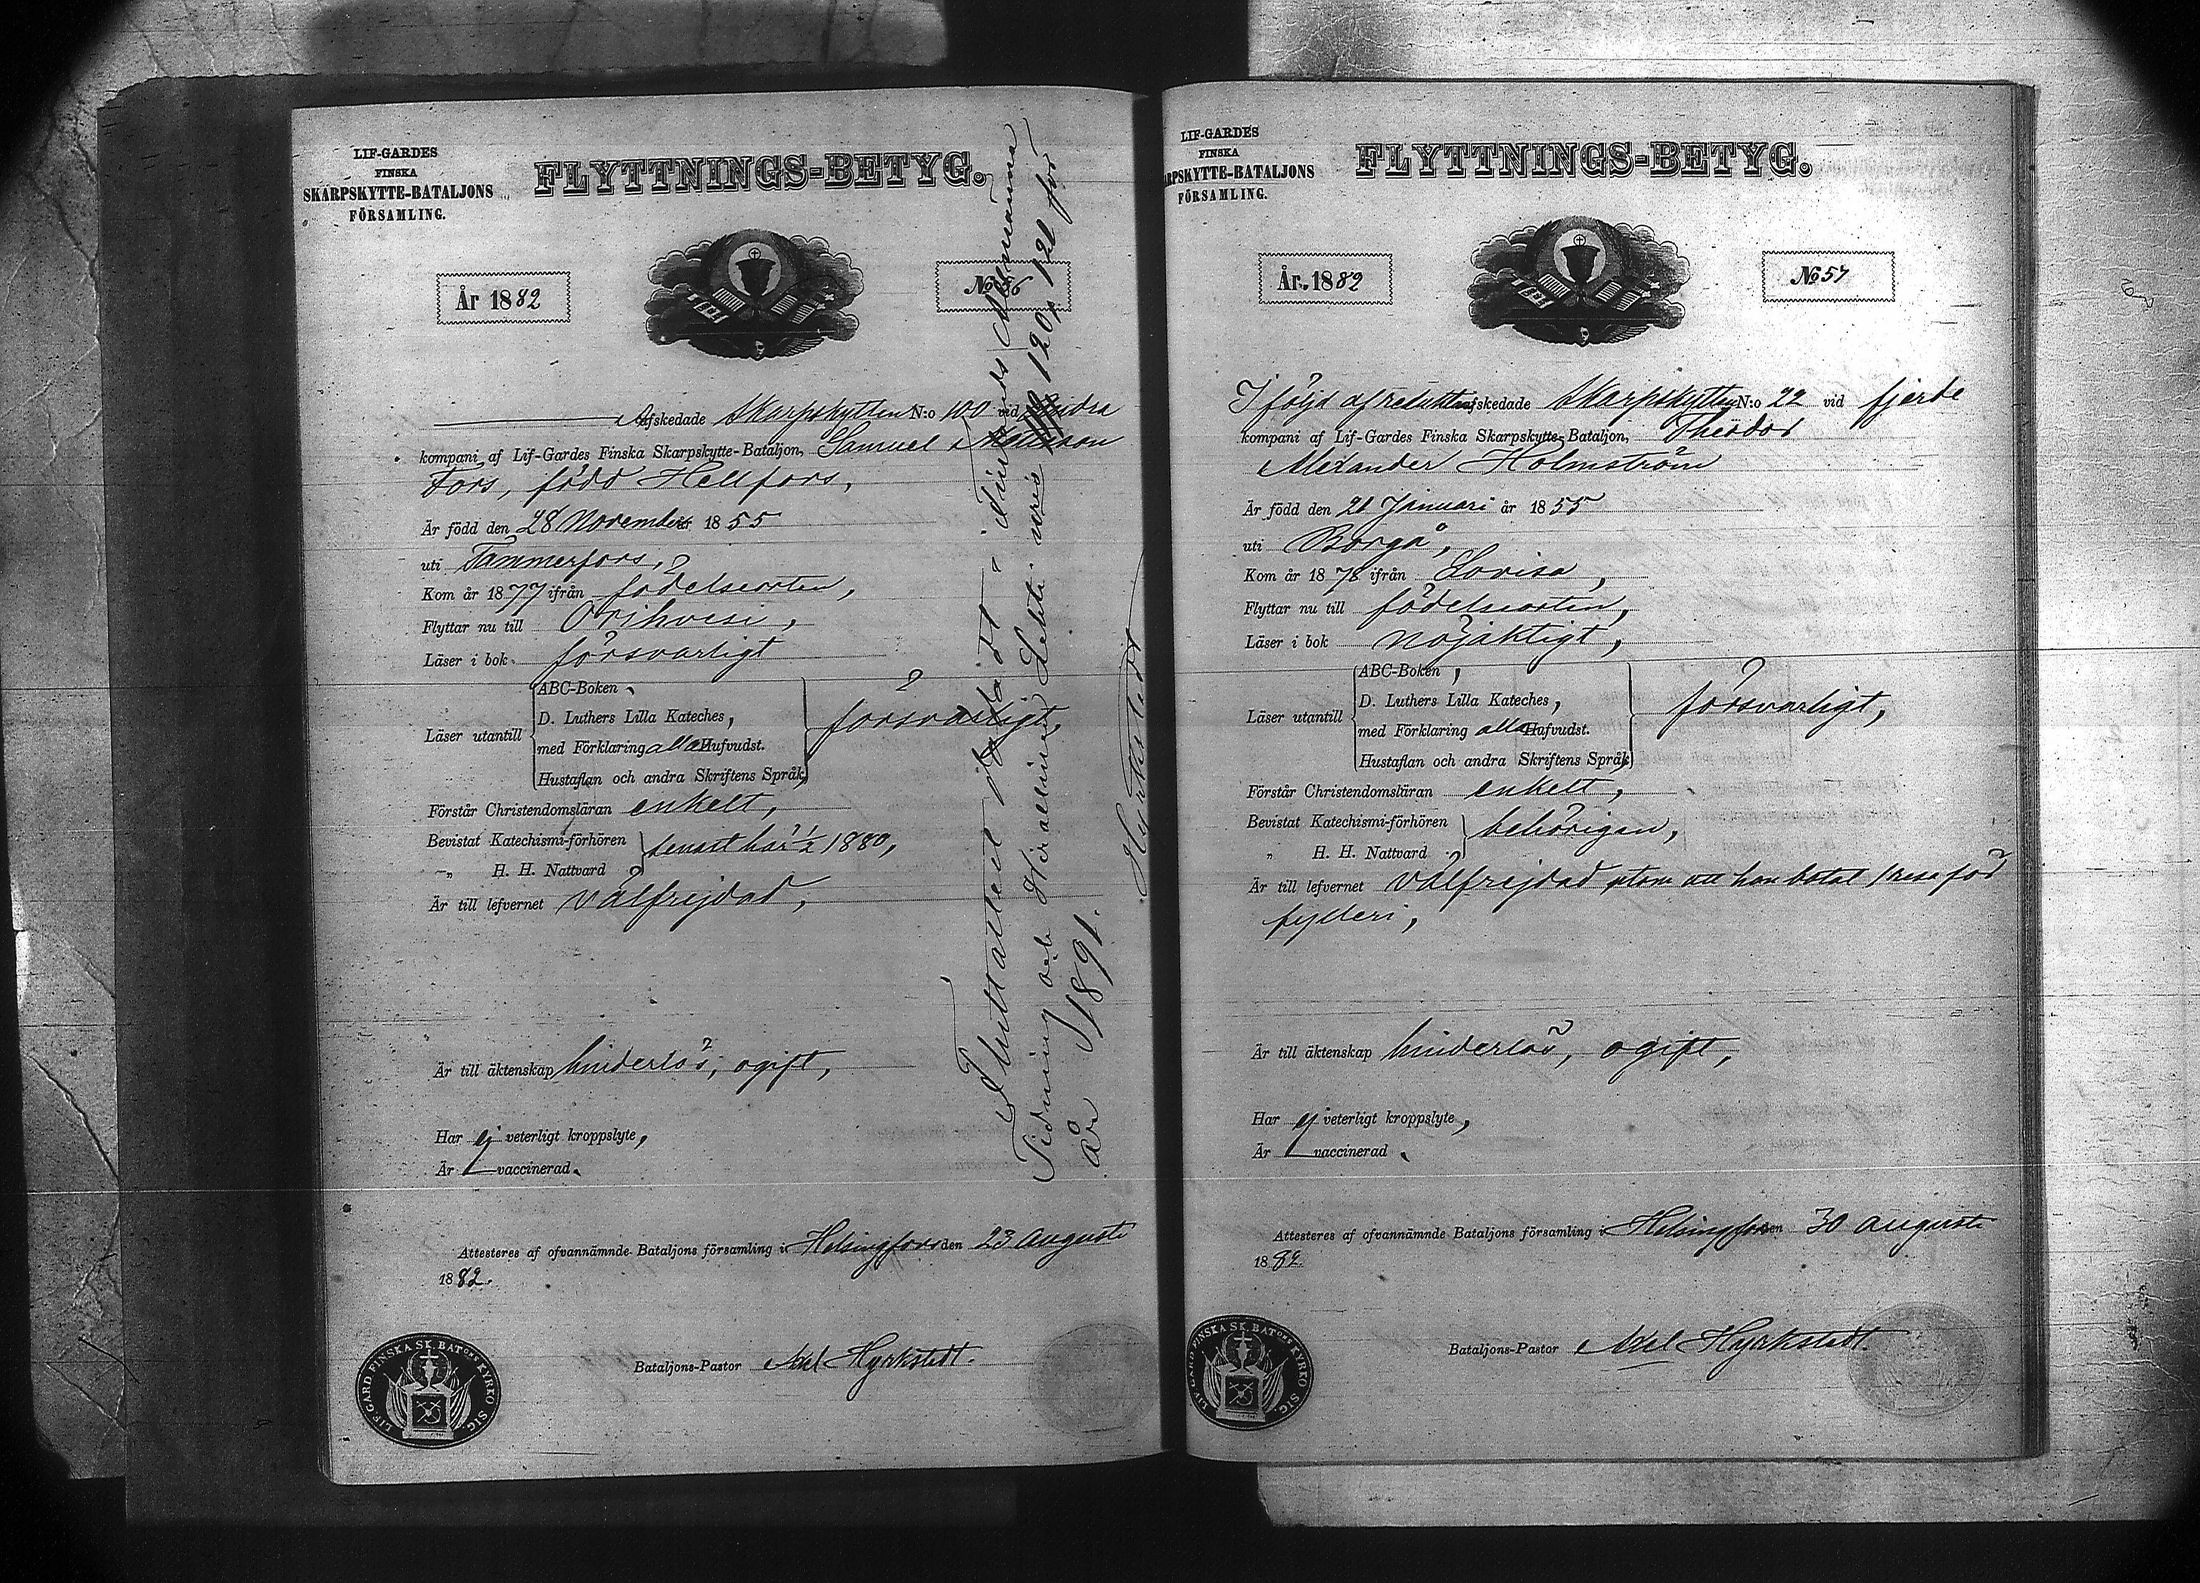 LIF-GARDES
FINSKA
SKARPSKYTTE-BATALJONS
FÖRSAMLING.
FLYTTNINGS-BETYG.
År 1882
№ 56
Afskedade Skarpskytten N:o 100 vid
kompani af Lif-Gardes Finska Skarpskytte-Bataljon, Samuel
Fors, född Hellfors,
Är född den 28 November 1855
uti Tammerfors,
Kom år 1877 ifrån födelseorten,
Flyttar nu till Orihvesi,
Läser i bok försvarligt
Läser utantill
ABC-Boken,
D. Luthers Lilla Kateches,
med Förklaring alla Hufvudst.
Hustaflan och andra Skriftens Språk,
försvarligt,
Förstår Christendomsläran enkelt,
Bevistat Katechismi-förhören
„ H. H. Nattvard
senast här ½ 1880,
Är till lefvernet välfrejdad,
Är till äktenskap hinderlös, ogift,
Har ej veterligt kroppslyte,
Är vaccinerad.
Attesteres af ofvannämnde Bataljons församling i Helsingfors den 23 Augusti
1882.
Bataljons-Pastor Axel Hyrkstedt.
LIF. GARD FINSKA SK. BAT:ONS KYRKO SIG.
i Finlands Allmänna
Tidning och Lehti 120, 121 för
år 1891.
Hyrkstedt
LIF-GARDES
FINSKA
RPSKYTTE-BATALJONS
FÖRSAMLING.
FLYTTNINGS-BETYG.
År 1882
№ 57
I följd af afskedade Skarpskytten N:o 22 vid fjerde
kompani af Lif-Gardes Finska Skarpskytte-Bataljon, Theodor
Alexander Holmström
Är född den 21 Januari år 1855
uti Borgå,
Kom år 1878 ifrån Lovisa,
Flyttar nu till födelseorten,
Läser i bok nöjaktigt,
Läser utantill
ABC-Boken,
D. Luthers Lilla Kateches,
med Förklaring alla Hufvudst.
Hustaflan och andra Skriftens Språk,
försvarligt,
Förstår Christendomsläran enkelt,
Bevistat Katechismi-förhören
„ H. H. Nattvard
behörigen,
Är till lefvernet välfrejdad utom att han botat 1 resa för
fylleri,
Är till äktenskap hinderlös, ogift,
Har ej veterligt kroppslyte,
Är vaccinerad.
Attesteres af ofvannämnde Bataljons församling i Helsingfors den 30 Augusti
1882.
Bataljons-Pastor Axel Hyrkstedt.
LIF. GARD FINSKA SK. BAT:ONS KYRKO SIG.